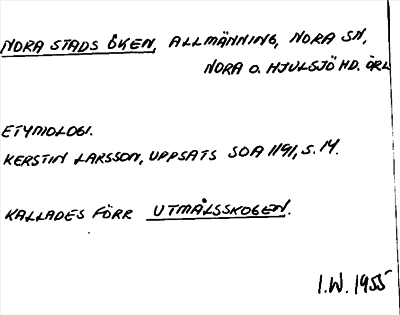 NORA STADS ÖKEN, ALLMÄNNING, NORA SN,
NORA O. HJULSJÖ HD. ÖRL
ETYMOLOGI.
KERSTIN LARSSON, UPPSATS SOA 1191, S. 14.
KALLADES FÖRR UTMÅLSSKOGEN.
I.W. 1955